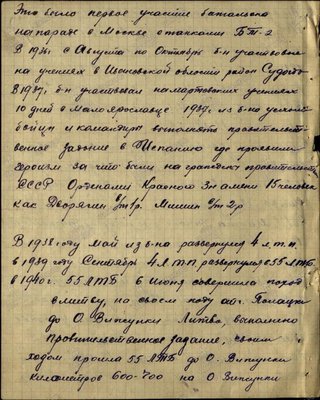 Это было первое участие батальона
на параде в Москве с танками БТ-2
В 1936 г с Августа по Октябрь б-н участвовал
на учениях в Ивановской области район Судогды
В 1937 г. б-н участвовал на мартовских учениях
10 дней в Малоярославце 1937 г. из б-на уехали
бойцы и командиры выполнять правительст-
венное задание в Испанию где проявили
героизм за что были награждены правительством
СССР Орденами Красного Знамени 15 человек
как Дворягин Мишин
В 1938 году май из б-на развернулся 4 л.т.п.
в 1939 году Сентябрь 4 ЛТП развернулся 55 ЛТБ
в 1940 г. 55 ЛТБ 6 июня совершила поход
в Литву, на своем ходу от г. Полоцка
до О. Литва, выполнено
правительственное задание, своим
ходом прошла 55 ЛТБ до О.
километров 600-700 на О